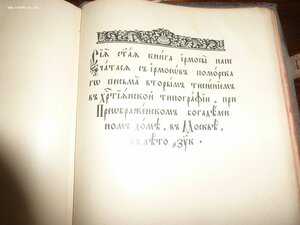 Сїѧ ст҃аѧ книга і҆рмосы̀ на́ши
ѹ҆ча́тасѧ съ і҆рмосѡвъ помо́рска
гѡ письма̀ вторы́мъ тисне́нїемъ
въ хрⷭ҇тїѧ́нской типогра́фїи, при
Преѡбраже́нскомъ богадѣ́лен
номъ до́мѣ, въ Москвѣ̀,
въ лѣ́то